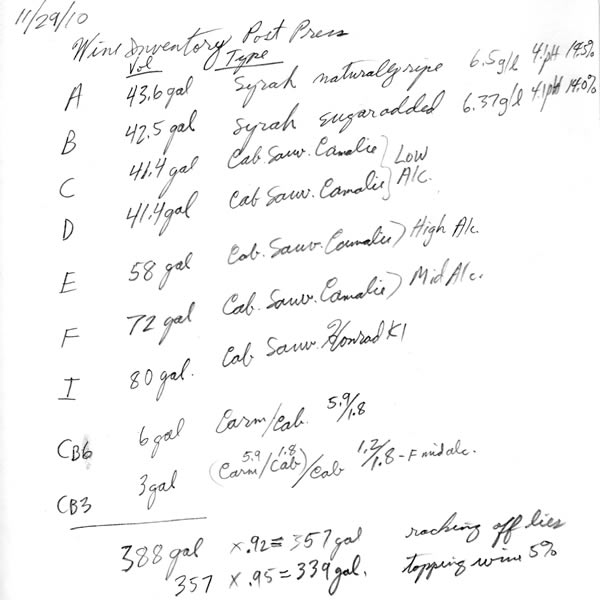 11/29/10
Wine Inventory Post Press
Vol Type
A 43.6 gal Syrah naturally ripe 6.5 g/l 4.1 pH 14.5%
B 42.5 gal Syrah sugar added 6.37 g/l 4.1 pH 14.0%
C 41.4 gal Cab Sauv. Camalie } Low
D 41.4 gal Cab Sauv. Camalie } Alc.
E 58 gal Cab. Sauv. Camalie } High Alc.
F 72 gal Cab. Sauv. Camalie } Mid Alc.
I 80 gal. Cab Sauv. K1
CB6 6 gal Carm/Cab. 5.9/1.8
CB3 3 gal (Carm/Cab)/Cab 5.9 1.8 1.2/1.8 - F mid alc.
388 gal x .92 = 357 gal racking off lies
357 x .95 = 339 gal. topping wine 5%